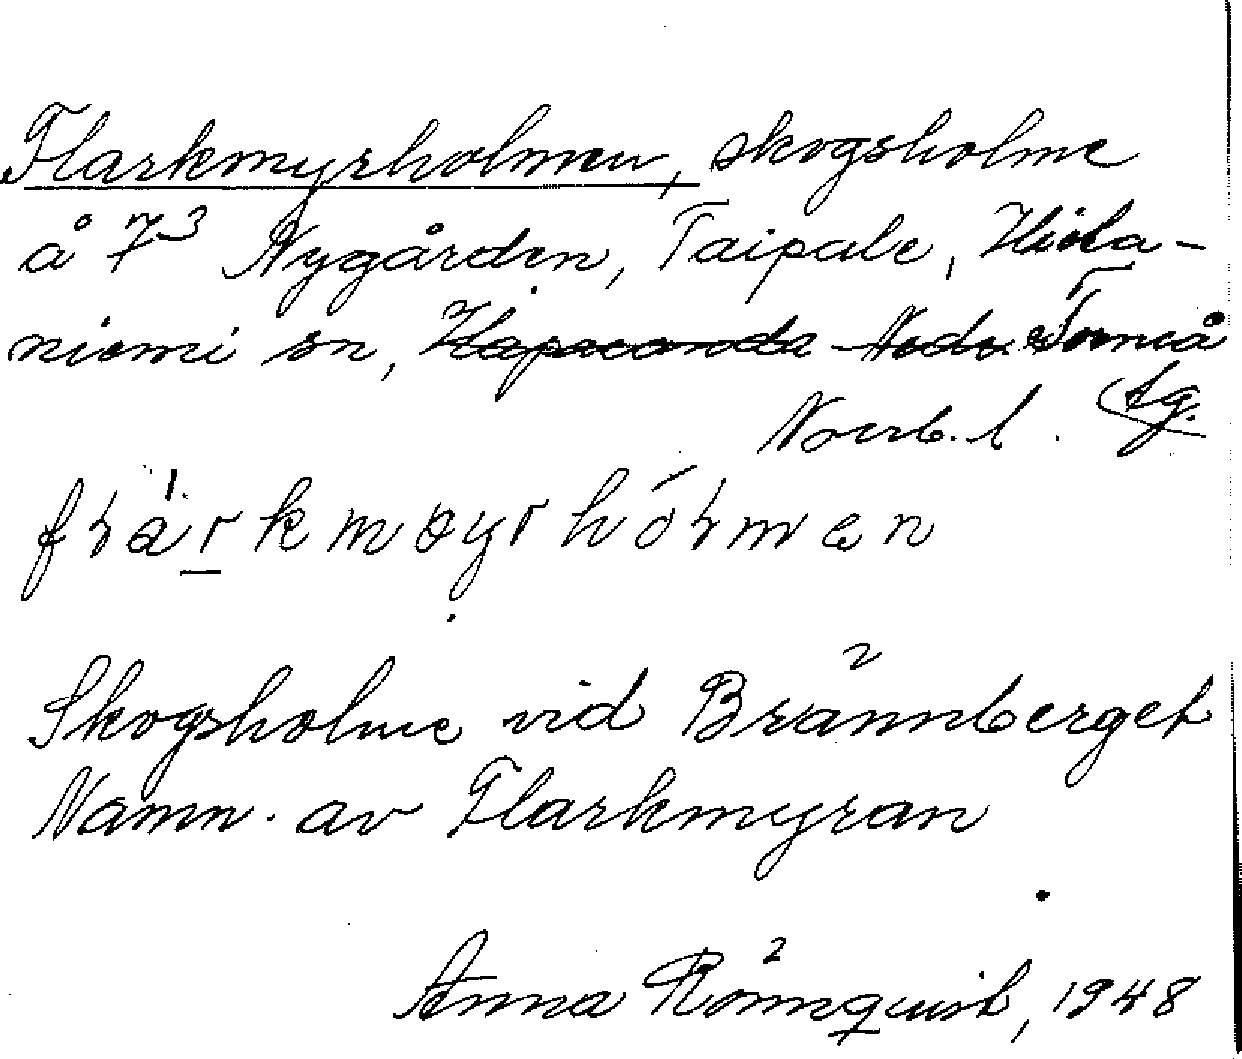 Flarkmyrholmen, skogsholme
å 7³ Nygården, Taipale, Hieta-
niemi sn, Haparanda Neder Torneå
Norrb. l. tg.
frärkmøyrhórmen
Skogsholme vid Brännberget
Namn. av Flarkmyran
Anna Rönnquist, 1948